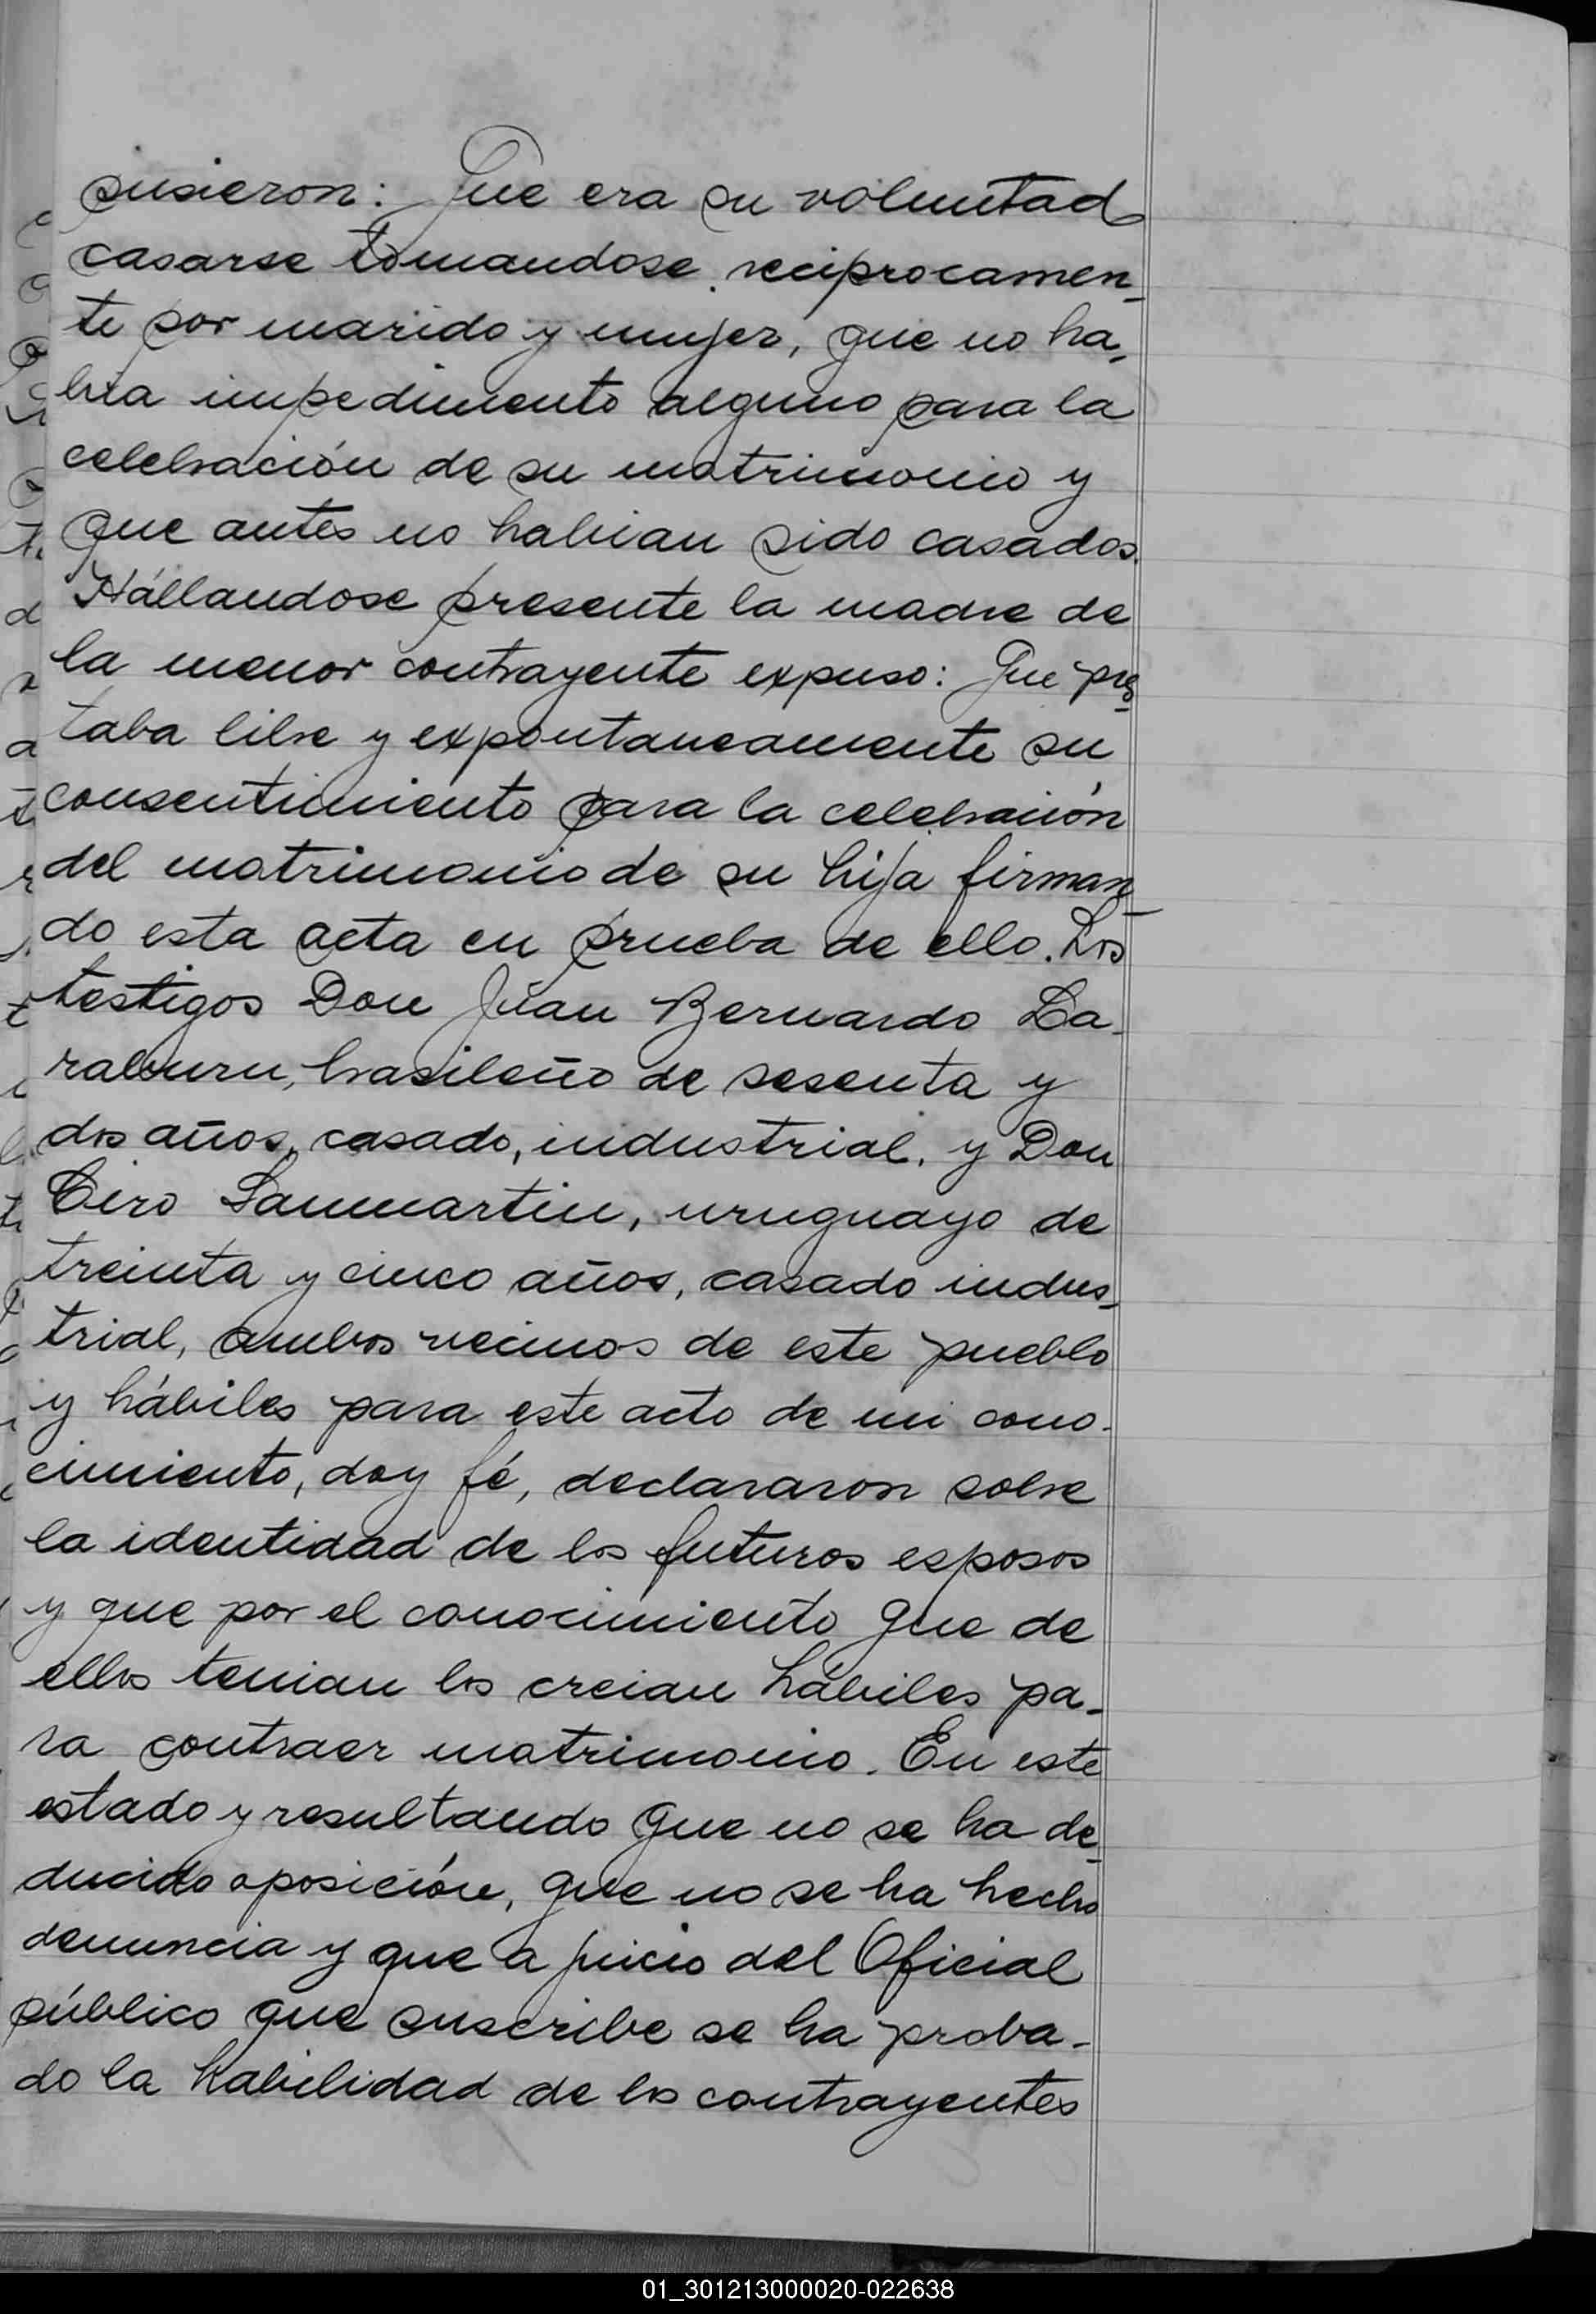 pusieron: Que era su voluntad
casarse tomandose reciprocamen-
te por marido y mujer, que no ha-
bia impedimento alguno para la
celebración de su matrimonio y
que antes no habian sido casados.
Hállandose presente la madre de
la menor contrayente expuso: Que pres-
taba libre y expontaneamente su
consentimiento para la celebración
del matrimonio de su hija firman-
do esta acta en prueba de ello. Los
testigos Don Juan Bernardo La-
raburu, brasileño de sesenta y
dos años, casado, industrial, y Don
Ciro Sanmartin, uruguayo de
treinta y cinco años, casado indus-
trial, ambos vecinos de este pueblo
y hábiles para este acto de mi cono-
cimiento, doy fé, declararon sobre
la identidad de los futuros esposos
y que por el conocimiento que de
ellos tenian los creian hábiles pa-
ra contraer matrimonio. En este
estado y resultando que no se ha de-
ducido oposición, que no se ha hecho
denuncia y que a juicio del Oficial
público que suscribe se ha proba-
do la habilidad de los contrayentes
01_301213000020-022638